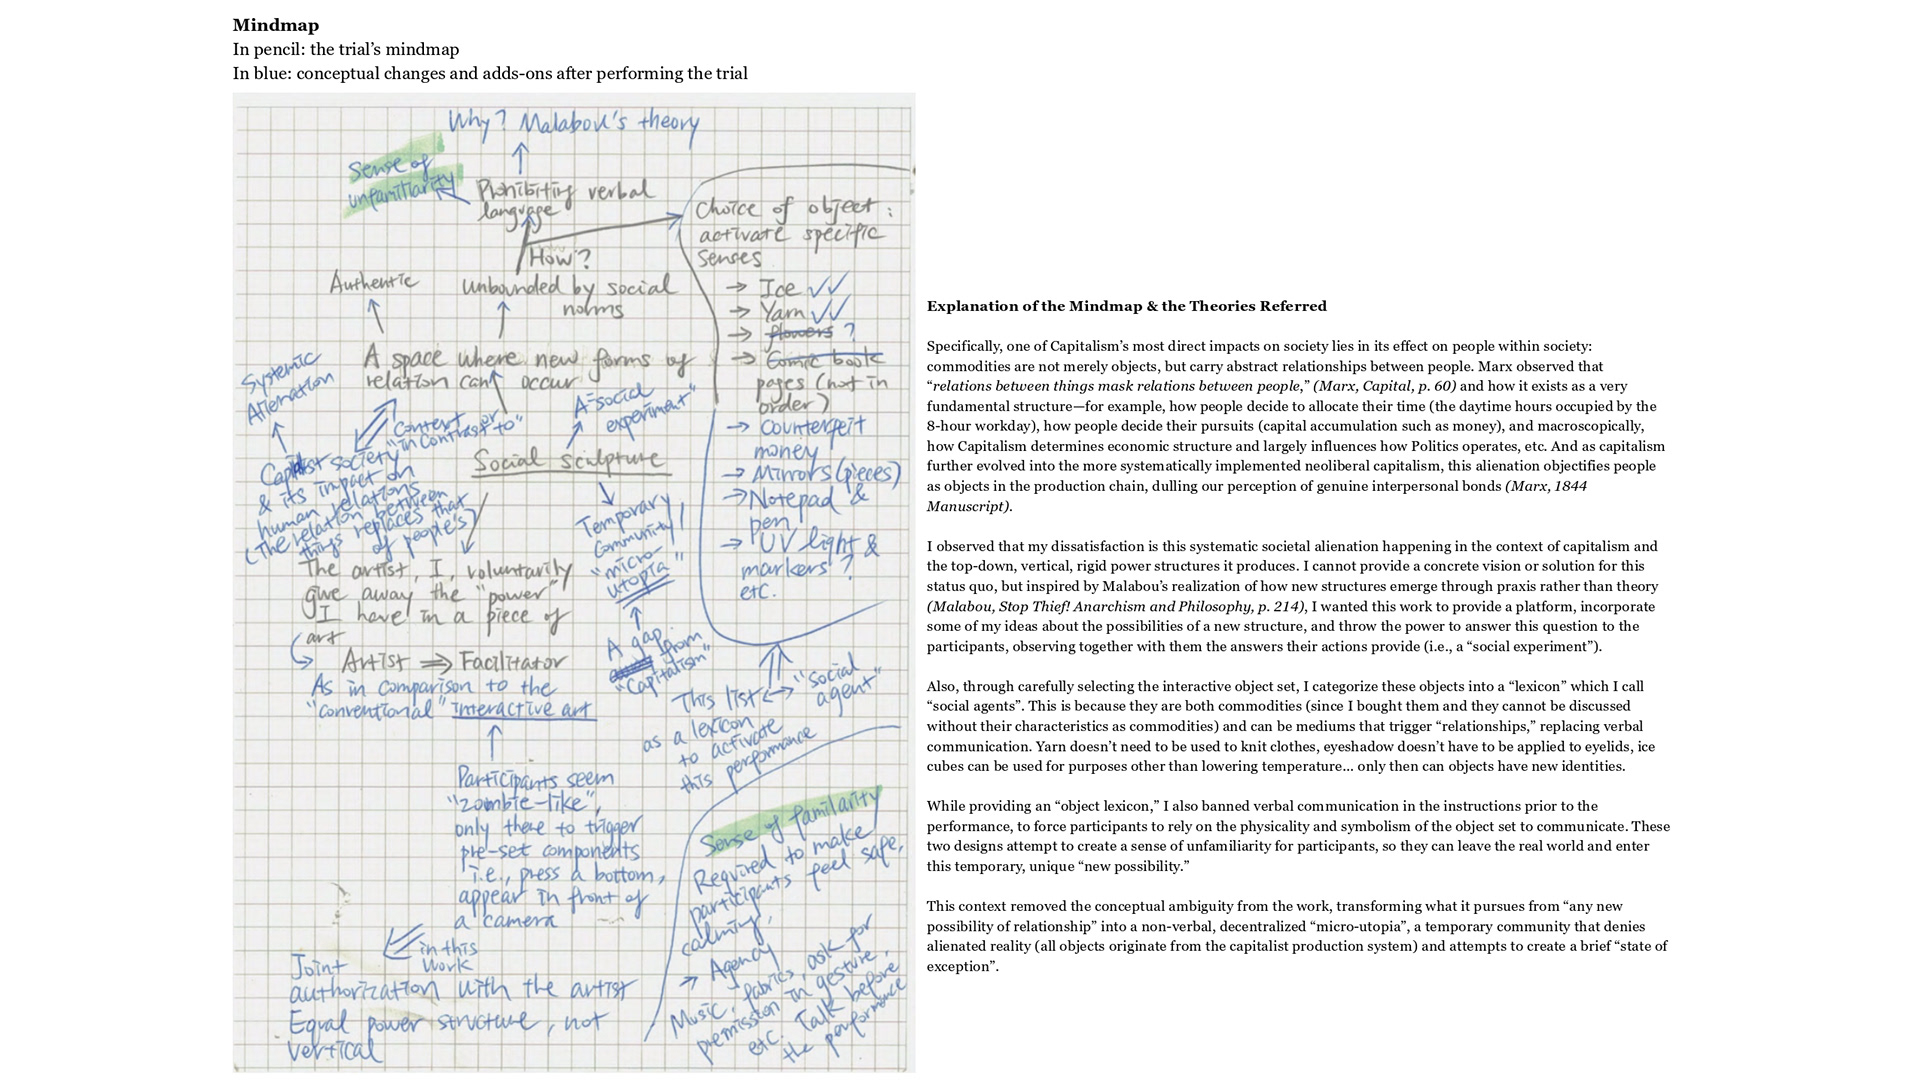 Mindmap
In pencil: the trial’s mindmap
In blue: conceptual changes and adds-ons after performing the trial
Why? Malabou's theory
Sense of
unfamiliarity
Prohibiting verbal
language
How?
Authentic
unbounded by social
norms
A space where new forms of
relation can occur
Systemic
Alienation
Context or
"in contrast to"
A "social
experiment"
Social sculpture
Capitalist society
& its impact on
human relations
(The relation between
things replaces that
of people's)
Temporary
Community/
"micro-
utopia"
The artist, I, voluntarily
give away the "power"
I have in a piece of
art
Artist ⇒ Facilitator
As in comparison to the
"conventional" interactive art
A gap
from
"Capitalism"
Participants seem
"zombie-like",
only there to trigger
pre-set components
i.e., press a bottom,
appear in front of
a camera
in this
work
Joint
authorization with the artist
Equal power structure, not
vertical
Choice of object :
activate specific
senses
→ Ice ✓✓
→ Yarn ✓✓
→ flowers ?
→ Comic book
pages (not in
order)
→ Counterfeit
money
→ Mirrors (pieces)
→ Notepad &
pen
→ UV light &
markers ?
etc.
This list ↔ "social
agent"
as a lexicon
to activate
this performance
Sense of familiarity
Required to make
participants feel safe,
calming,
→ Agency
Music, fabrics, ask for
permission in gesture,
etc. Talk before
the performance
Explanation of the Mindmap & the Theories Referred
Specifically, one of Capitalism’s most direct impacts on society lies in its effect on people within society:
commodities are not merely objects, but carry abstract relationships between people. Marx observed that
“relations between things mask relations between people,” (Marx, Capital, p. 60) and how it exists as a very
fundamental structure—for example, how people decide to allocate their time (the daytime hours occupied by the
8-hour workday), how people decide their pursuits (capital accumulation such as money), and macroscopically,
how Capitalism determines economic structure and largely influences how Politics operates, etc. And as capitalism
further evolved into the more systematically implemented neoliberal capitalism, this alienation objectifies people
as objects in the production chain, dulling our perception of genuine interpersonal bonds (Marx, 1844
Manuscript).
I observed that my dissatisfaction is this systematic societal alienation happening in the context of capitalism and
the top-down, vertical, rigid power structures it produces. I cannot provide a concrete vision or solution for this
status quo, but inspired by Malabou’s realization of how new structures emerge through praxis rather than theory
(Malabou, Stop Thief! Anarchism and Philosophy, p. 214), I wanted this work to provide a platform, incorporate
some of my ideas about the possibilities of a new structure, and throw the power to answer this question to the
participants, observing together with them the answers their actions provide (i.e., a “social experiment”).
Also, through carefully selecting the interactive object set, I categorize these objects into a “lexicon” which I call
“social agents”. This is because they are both commodities (since I bought them and they cannot be discussed
without their characteristics as commodities) and can be mediums that trigger “relationships,” replacing verbal
communication. Yarn doesn’t need to be used to knit clothes, eyeshadow doesn’t have to be applied to eyelids, ice
cubes can be used for purposes other than lowering temperature… only then can objects have new identities.
While providing an “object lexicon,” I also banned verbal communication in the instructions prior to the
performance, to force participants to rely on the physicality and symbolism of the object set to communicate. These
two designs attempt to create a sense of unfamiliarity for participants, so they can leave the real world and enter
this temporary, unique “new possibility.”
This context removed the conceptual ambiguity from the work, transforming what it pursues from “any new
possibility of relationship” into a non-verbal, decentralized “micro-utopia”, a temporary community that denies
alienated reality (all objects originate from the capitalist production system) and attempts to create a brief “state of
exception”.